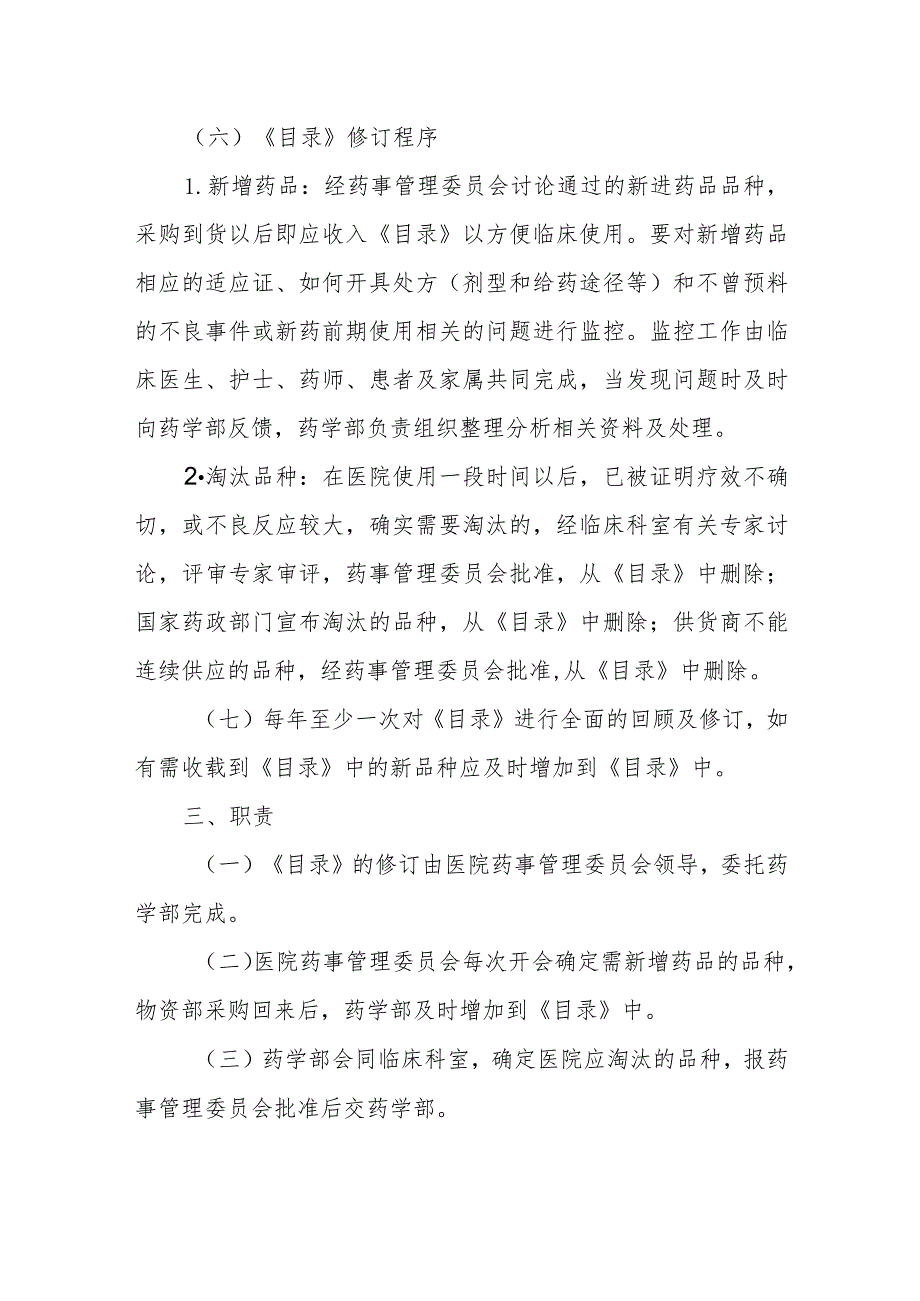 （六）《目录》修订程序
1.新增药品：经药事管理委员会讨论通过的新进药品品种，
采购到货以后即应收入《目录》以方便临床使用。要对新增药品
相应的适应证、如何开具处方（剂型和给药途径等）和不曾预料
的不良事件或新药前期使用相关的问题进行监控。监控工作由临
床医生、护士、药师、患者及家属共同完成，当发现问题时及时
向药学部反馈，药学部负责组织整理分析相关资料及处理。
2•淘汰品种：在医院使用一段时间以后，已被证明疗效不确
切，或不良反应较大，确实需要淘汰的，经临床科室有关专家讨
论，评审专家审评，药事管理委员会批准，从《目录》中删除；
国家药政部门宣布淘汰的品种，从《目录》中删除；供货商不能
连续供应的品种，经药事管理委员会批准,从《目录》中删除。
（七）每年至少一次对《目录》进行全面的回顾及修订，如
有需收载到《目录》中的新品种应及时增加到《目录》中。
三、职责
（一）《目录》的修订由医院药事管理委员会领导，委托药
学部完成。
（二）医院药事管理委员会每次开会确定需新增药品的品种，
物资部采购回来后，药学部及时增加到《目录》中。
（三）药学部会同临床科室，确定医院应淘汰的品种，报药
事管理委员会批准后交药学部。